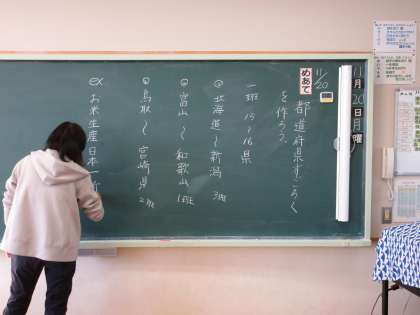 11月20日月曜
11/20
めあて
都道府県すごろく
を作ろう。
一班 15~16県
北海道~新潟 3班
富山~和歌山 1班
鳥取~宮崎県 2班
ex お米生産日本一